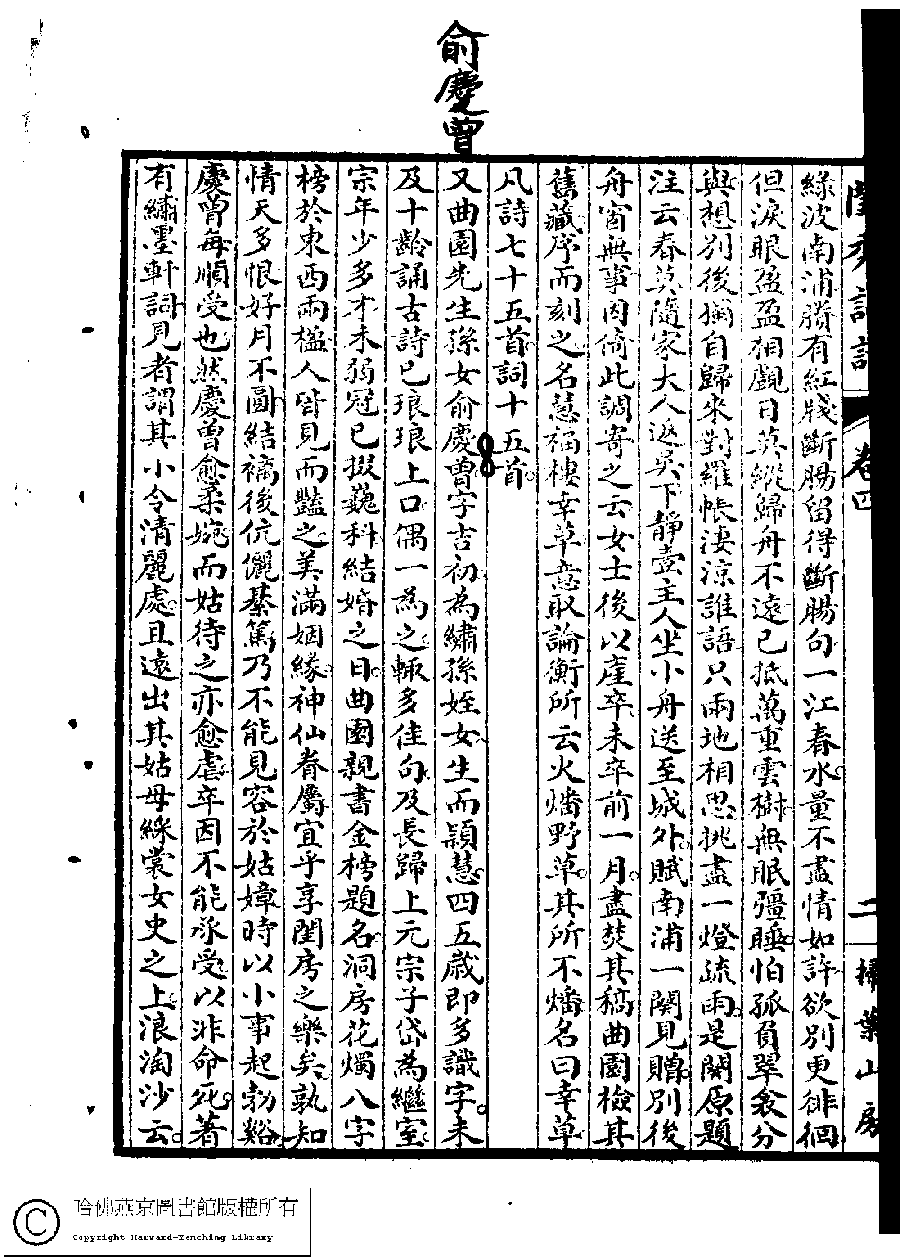 俞慶曾
閨秀詩話 卷四 二 掃葉山房
綠波南浦勝有紅牋斷腸留得斷腸句一江春水量不盡情如許欲別更徘徊
但淚眼盈盈相覷日莫縱歸舟不遠已抵萬重雲樹無眠彊睡怕孤負翠衾分
與想別後獨自歸來對羅帳淒涼誰語只兩地相思挑盡一燈疏雨是闋原題
注云春莫隨家大人返吳下靜壹主人坐小舟送至城外賦南浦一闋見贈別後
舟窗無事因倚此調寄之云女士後以產卒未卒前一月盡焚其稿曲園檢其
舊藏序而刻之名慧福樓幸草意取論衡所云火燔野草其所不燔名曰幸草
凡詩七十五首詞十五首
又曲園先生孫女俞慶曾字吉初為繡孫姪女生而穎慧四五歲即多識字未
及十齡誦古詩已琅琅上口偶一為之輒多佳句及長歸上元宗子岱為繼室
宗年少多才未弱冠已掇巍科結婚之日曲園親書金榜題名洞房花燭八字
榜於東西兩楹人皆見而豔之美滿姻緣神仙眷屬宜乎享閨房之樂矣孰知
情天多恨好月不圓結褵後伉儷綦篤乃不能見容於姑嫜時以小事起勃谿
慶曾每順受也然慶曾愈柔婉而姑待之亦愈虐卒因不能承受以非命死著
有繡墨軒詞見者謂其小令清麗處且遠出其姑母綵裳女史之上浪淘沙云
哈佛燕京圖書館版權所有
Copyright Harvard-Yenching Library